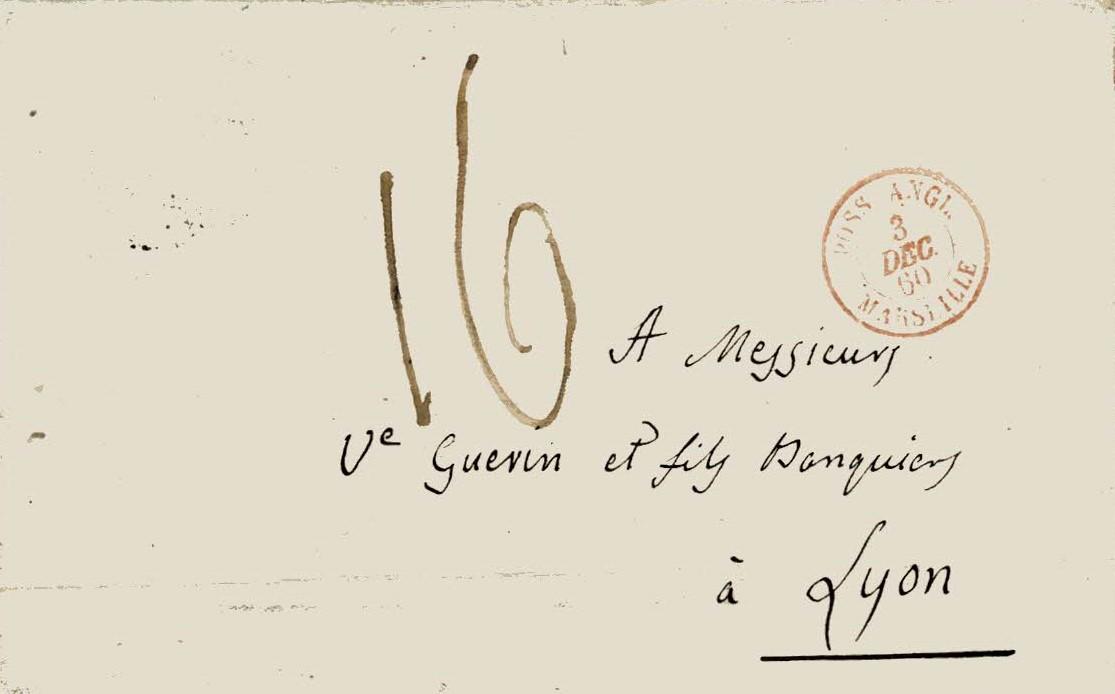 16
POSS ANGL.
3
DEC.
60
MARSEILLE
A Messieurs
Ve Guerin et fils Banquiers
à Lyon